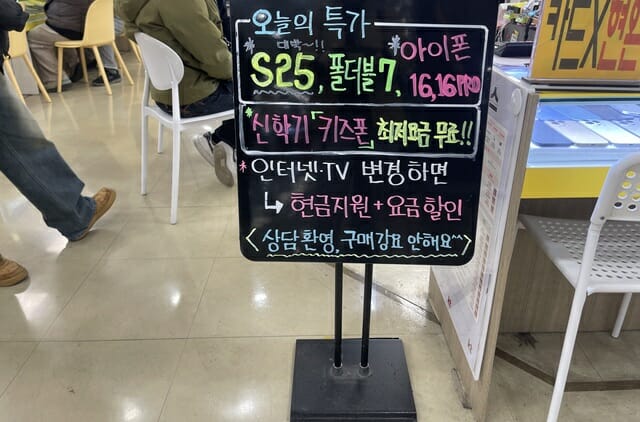 오늘의 특가
대박~!!
*아이폰
S25, 폴더블7, 16,16PRO
*신학기「키즈폰」최저요금 무료!!
*인터넷·TV 변경하면
↳ 현금지원+요금할인
<상담환영, 구매강요 안해요~^>
카드X현